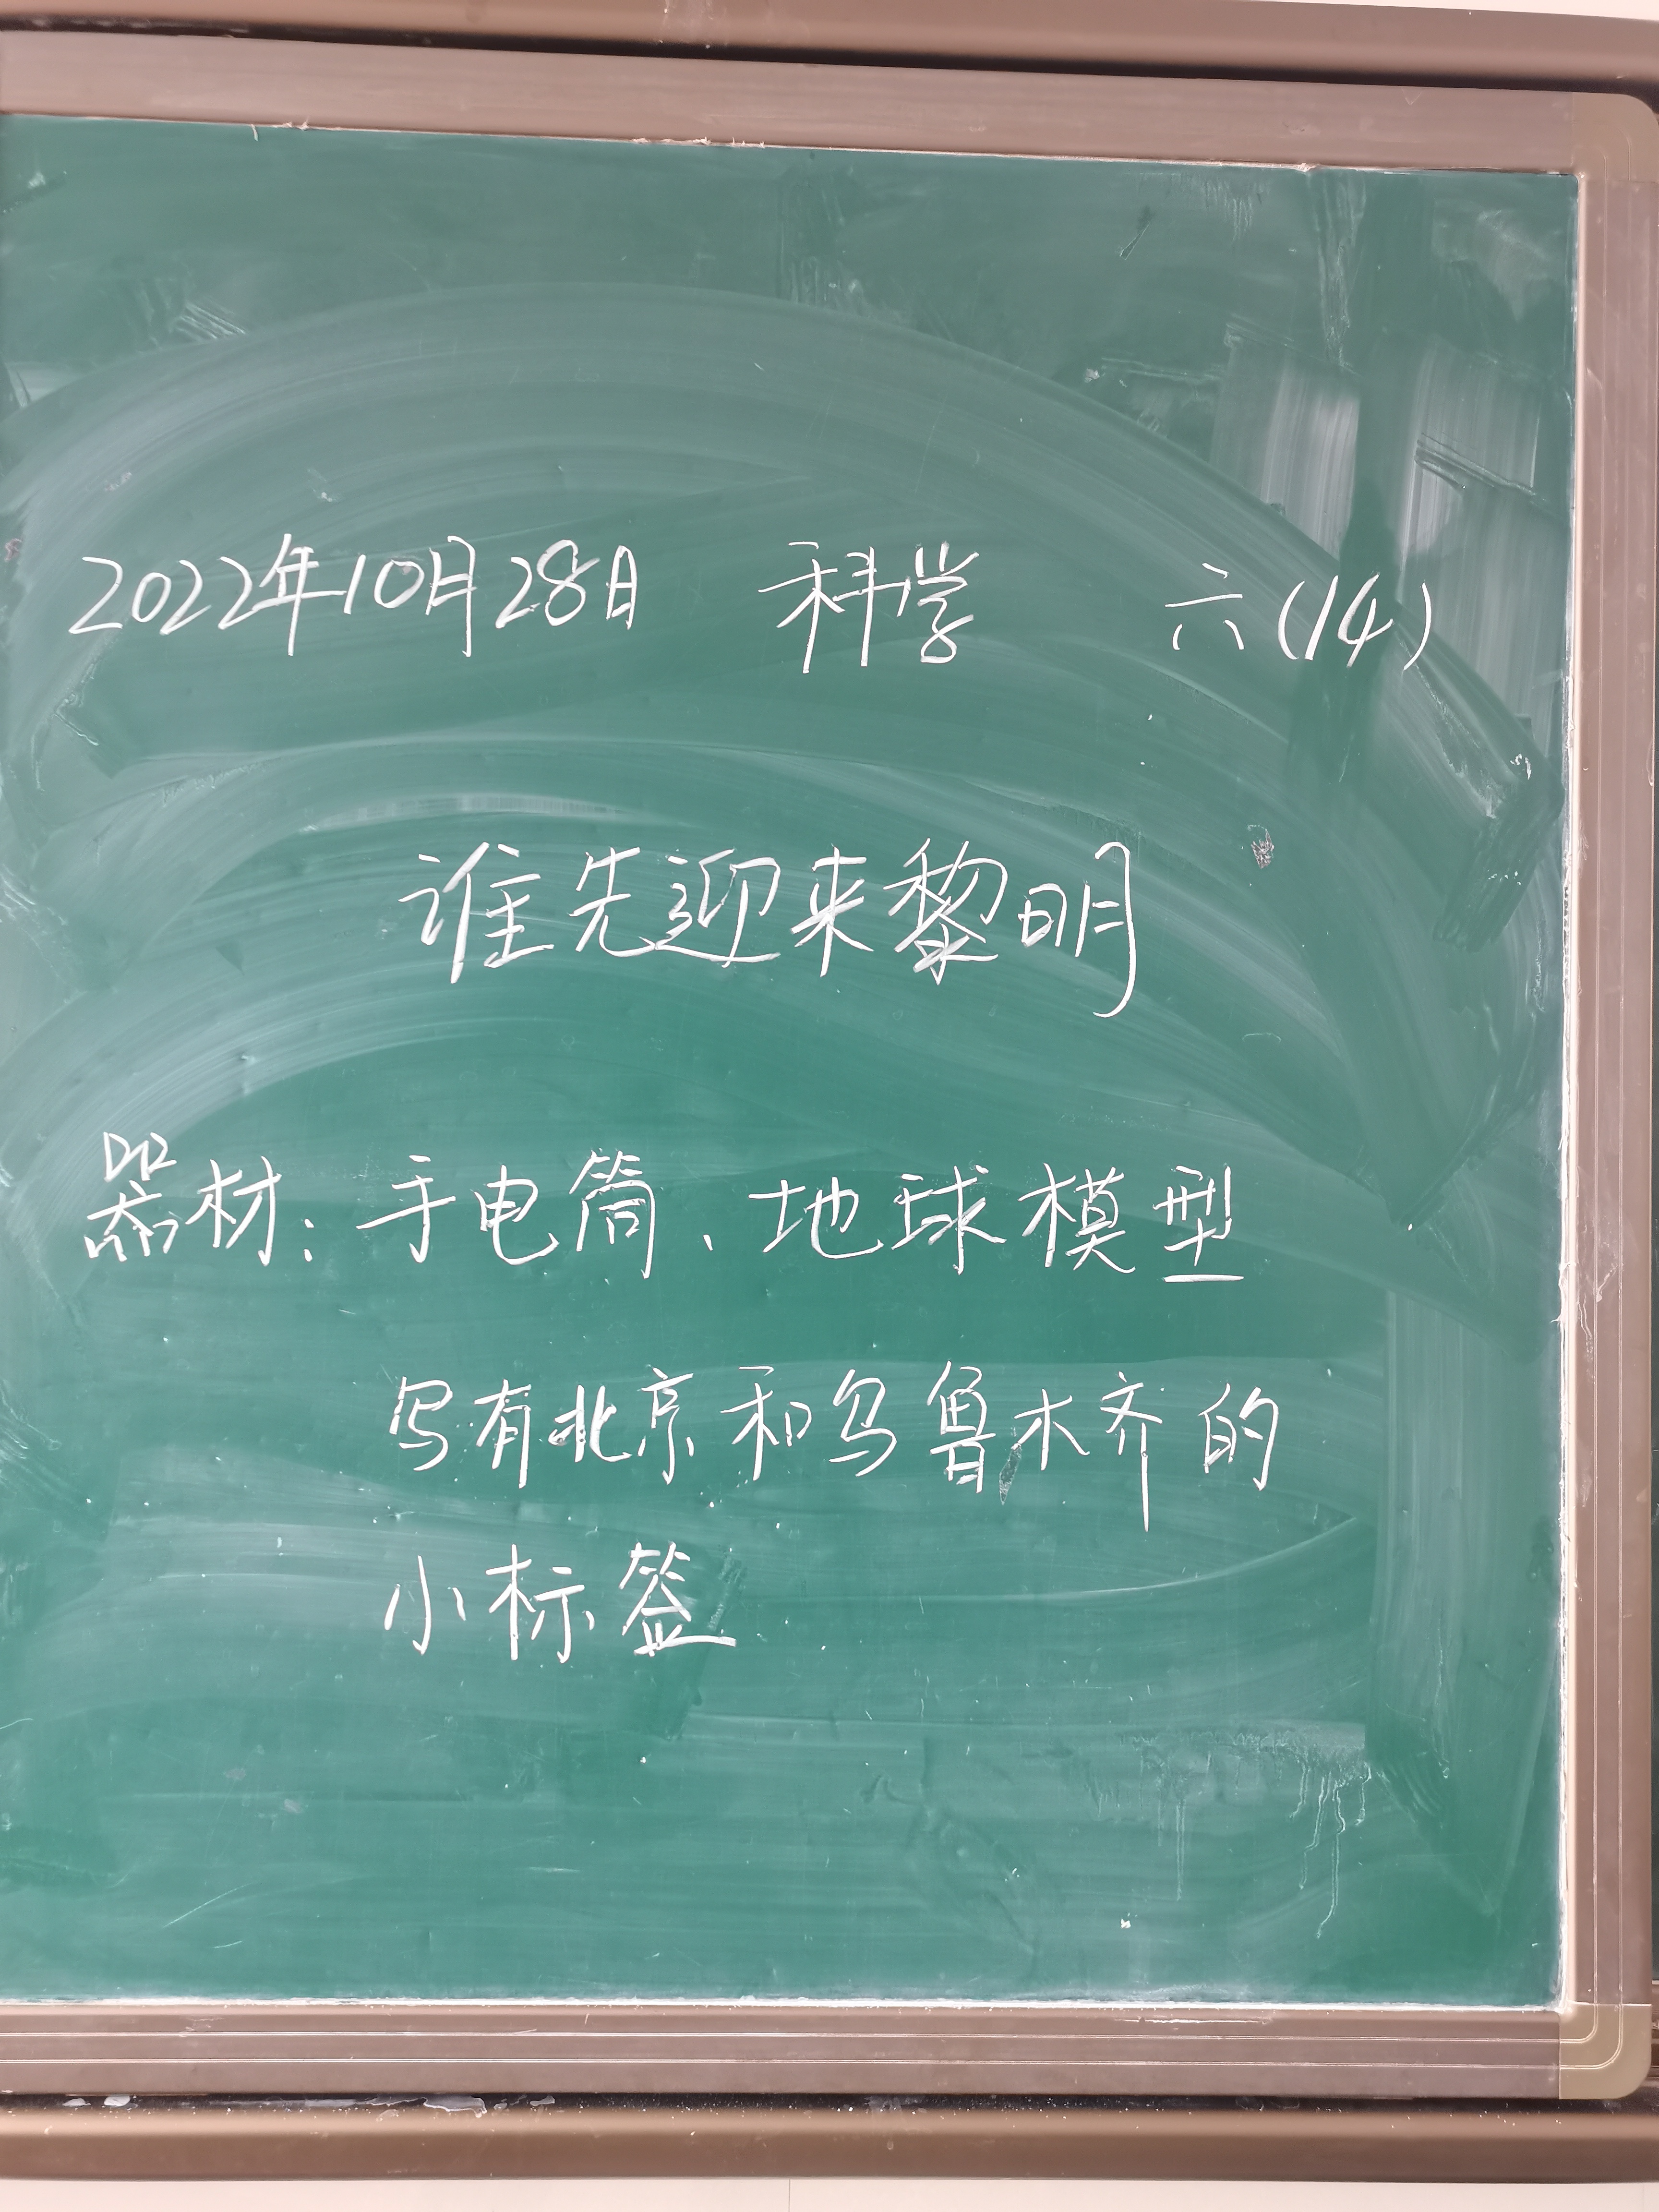 2022年10月28日 科学 六(14)
谁先迎来黎明
器材：手电筒、地球模型
写有北京和乌鲁木齐的
小标签